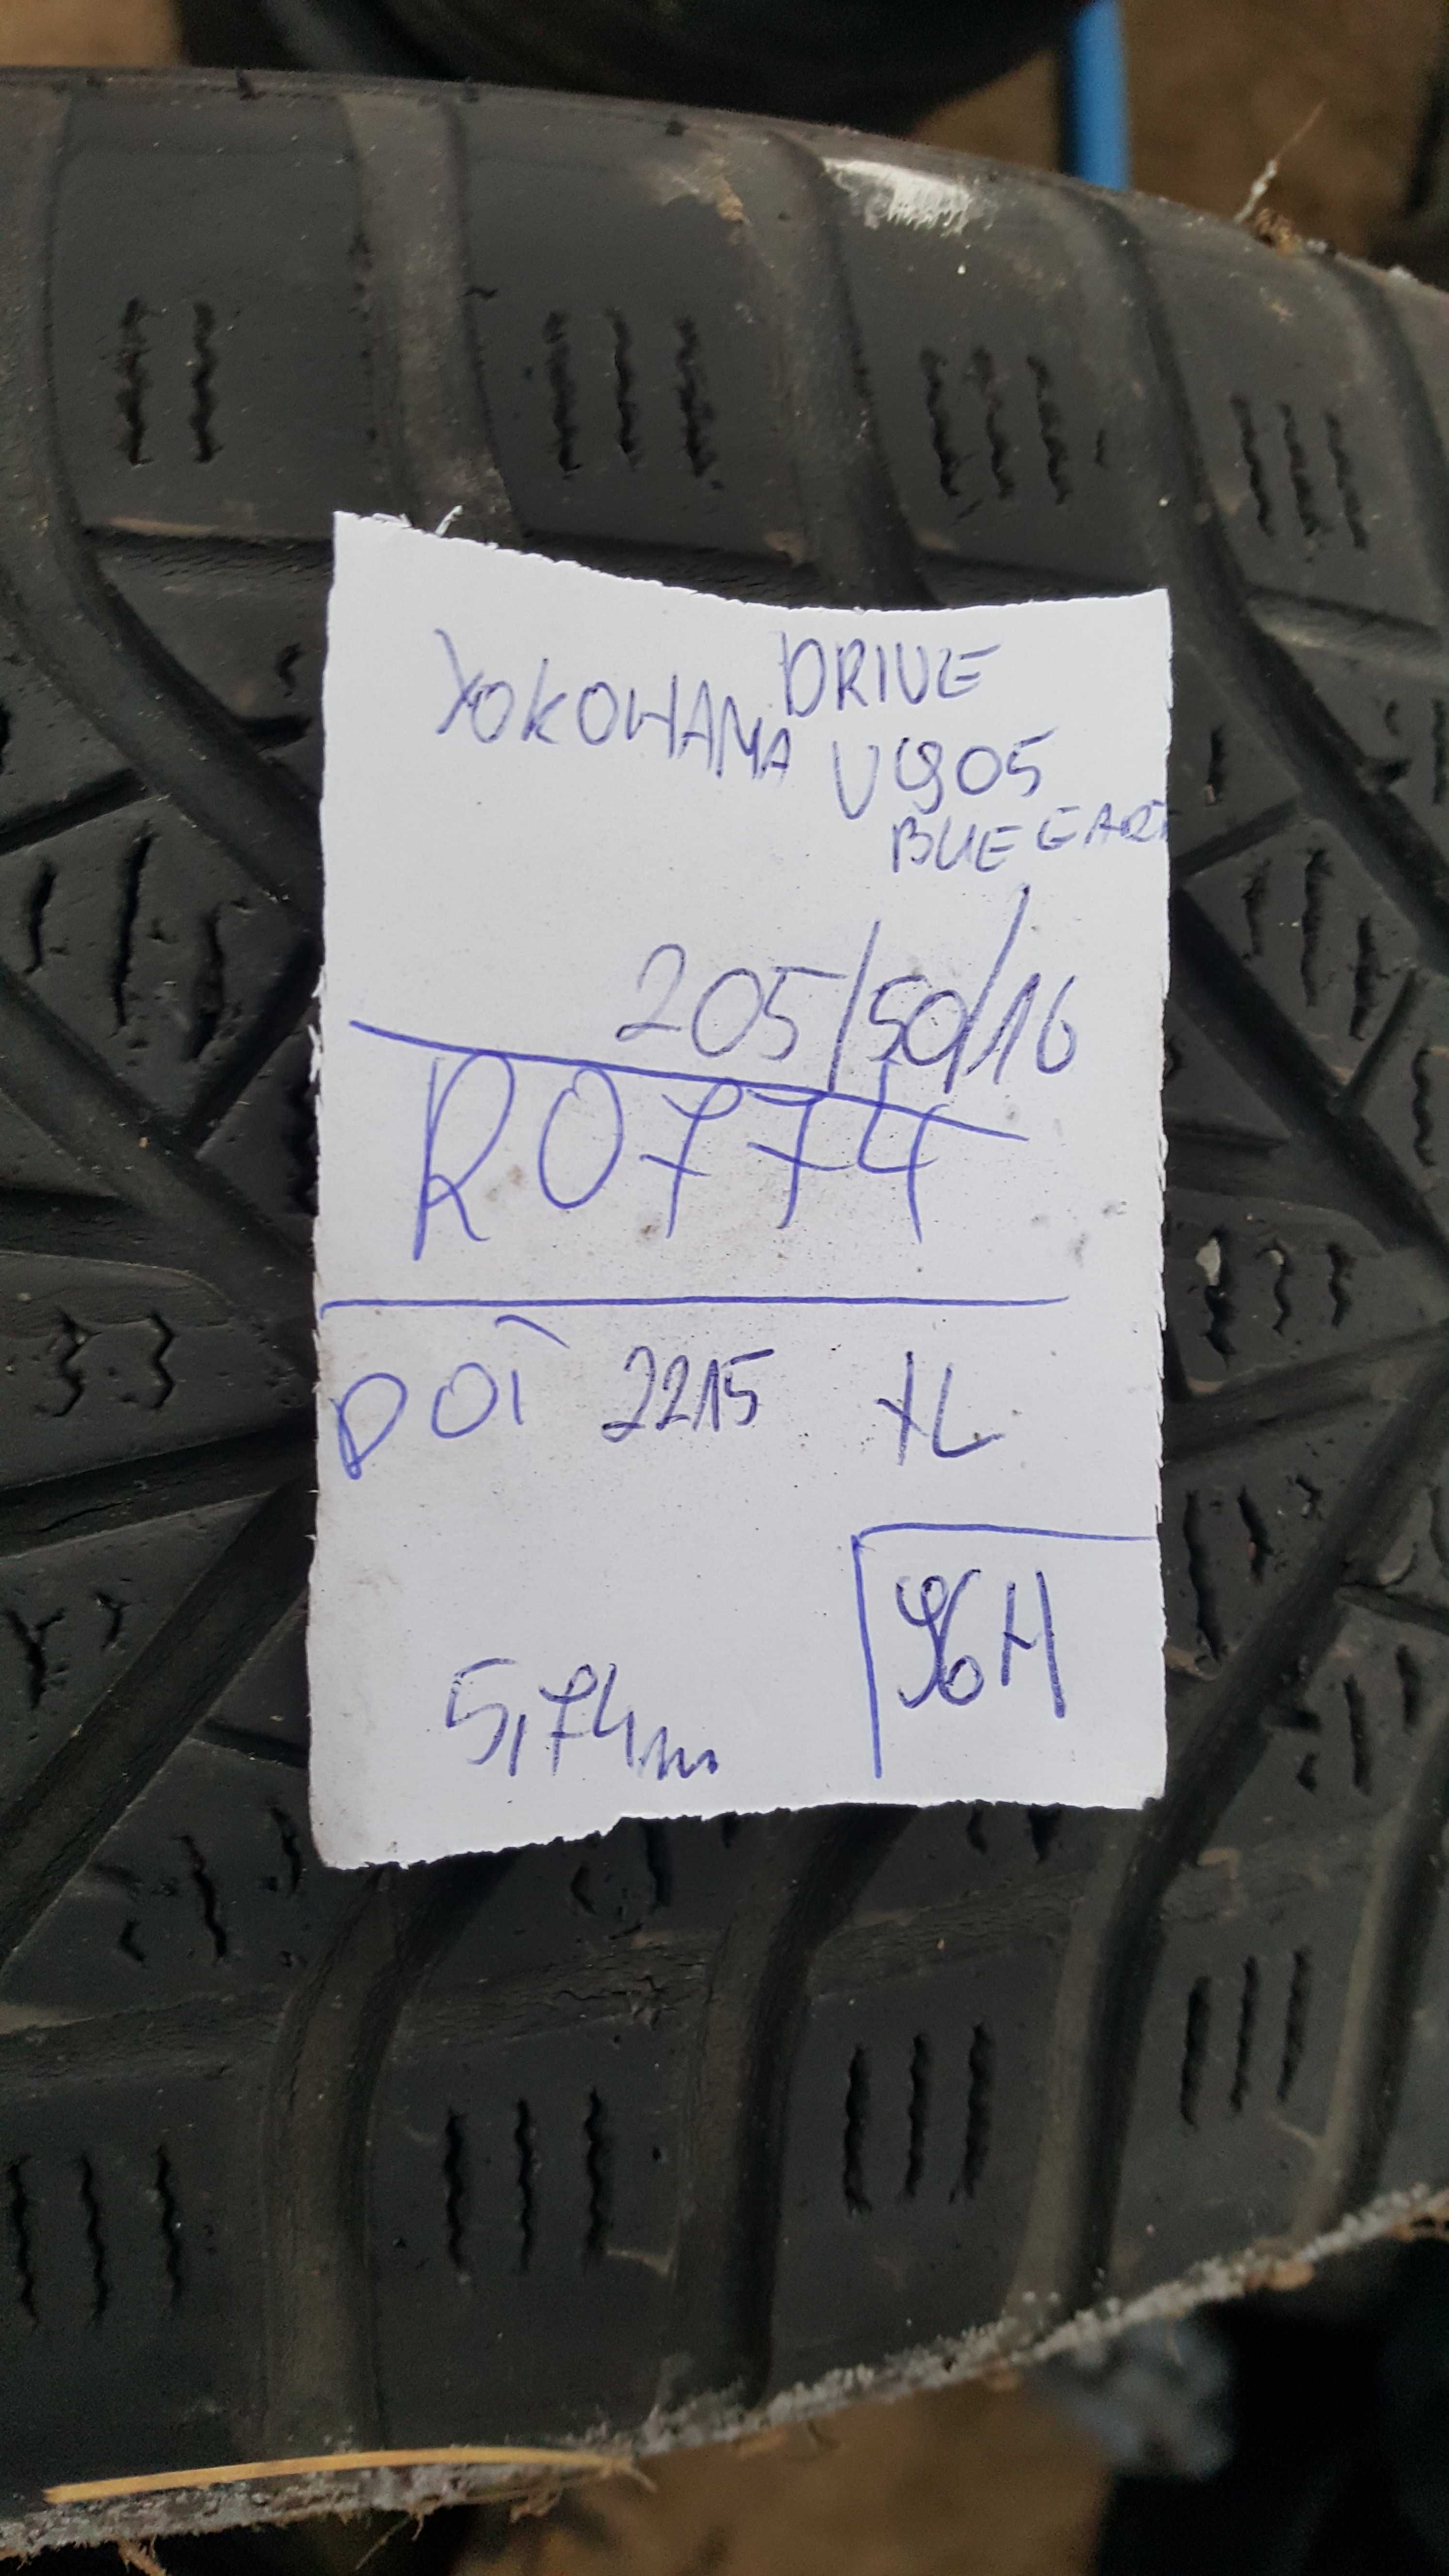 DRIVE
YOKOHAMA V905
BLUE EART
205/50/16
R0774
DOT 2215 XL
96H
5,74m